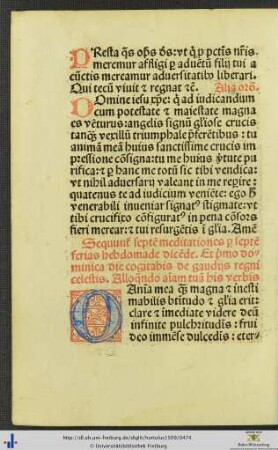 PResta q̄s om̄ps d̄s: vt q̄ p pctīs nr̄is
meremur affligi p aduētū filij tui a
cūctis mereamur aduersitatib liberari.
Qui tecū viuit ⁊ regnat ⁊c̄. Alia orō.
DOmine iesu xp̄e: q̄ ad iudicandum
cum potestate ⁊ maiestate magna
es vēturus: angelis signū gl̄iose crucis
tanq̄ vexillū triumphale p̄ferētibus: tu
animā meā huius sanctissime crucis im
pressione cōsigna: tu me huius v̓tute pu
rifica: ⁊ p hanc me totū sic tibi vendica:
vt nihil aduersarij valeant in me repire:
quatenus te ad iudicium veniēte: ego h̓
venerabili inueniar signac̓ stigmate: vt
tibi crucifixo cōfigurat̓ in pena cōsors
fieri merear: ⁊ tui resurgētis ī gl̄ia. Amē
Sequunt̄ septē meditationes p septē
ferias hebdomade dicēde. Et p̄mo do-
minica die cogitabis de gaudijs regni
celestis. Alloq̄ndo aīam tuā his verbis
O Ania mea q̄ magna ⁊ inesti
mabilis btitudo ⁊ gl̄ia erit:
clare ⁊ imediate videre deū
infinite pulchritudīs : frui
deo imēse dulcedīs : eter-
http://dl.ub.uni-freiburg.de/diglit/hortulus1500/0474
© Universitätsbibliothek Freiburg
Baden-Württemberg